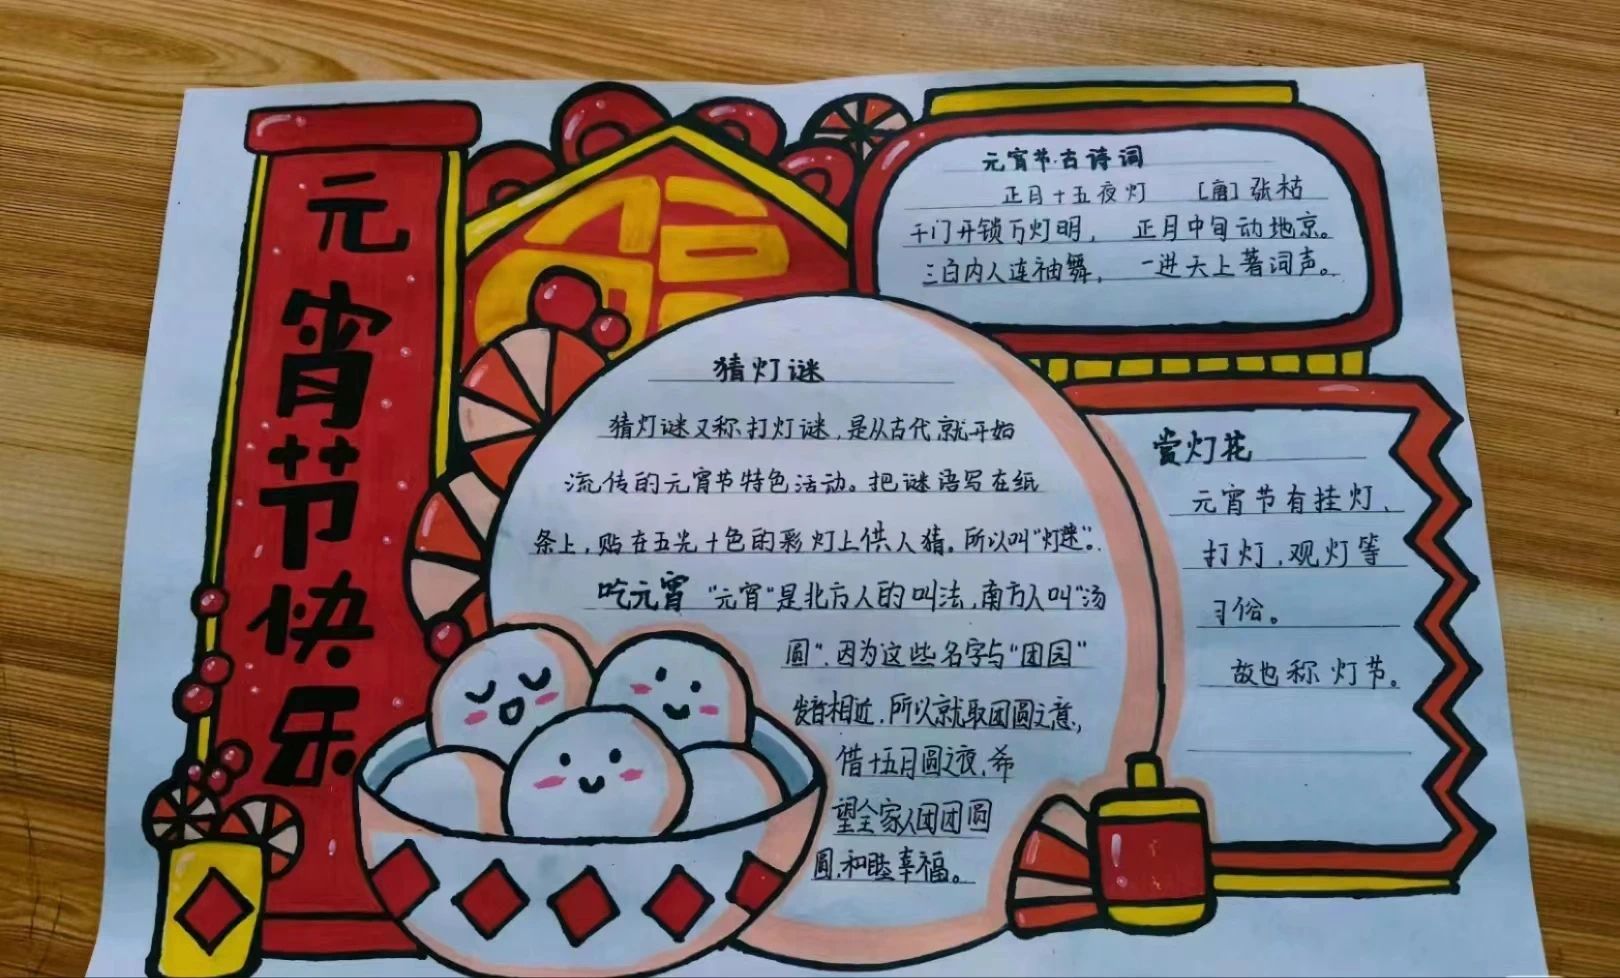 元宵节快乐
福
元宵节·古诗词
正月十五夜灯 [唐]张祜
千门开锁万灯明， 正月中旬动地京。
三百内人连袖舞， 一进天上著词声。
猜灯谜
猜灯谜又称打灯谜，是从古代就开始
流传的元宵节特色活动。把谜语写在纸
条上，贴在五光十色的彩灯上供人猜。所以叫“灯谜”。
吃元宵 “元宵”是北方人的叫法，南方人叫“汤
圆”，因为这些名字与“团园”
发音相近，所以就取团圆之意，
借十五月圆之夜，希
望全家人团团圆
圆，和睦幸福。
赏灯花
元宵节有挂灯、
打灯，观灯等
习俗。
故也称灯节。